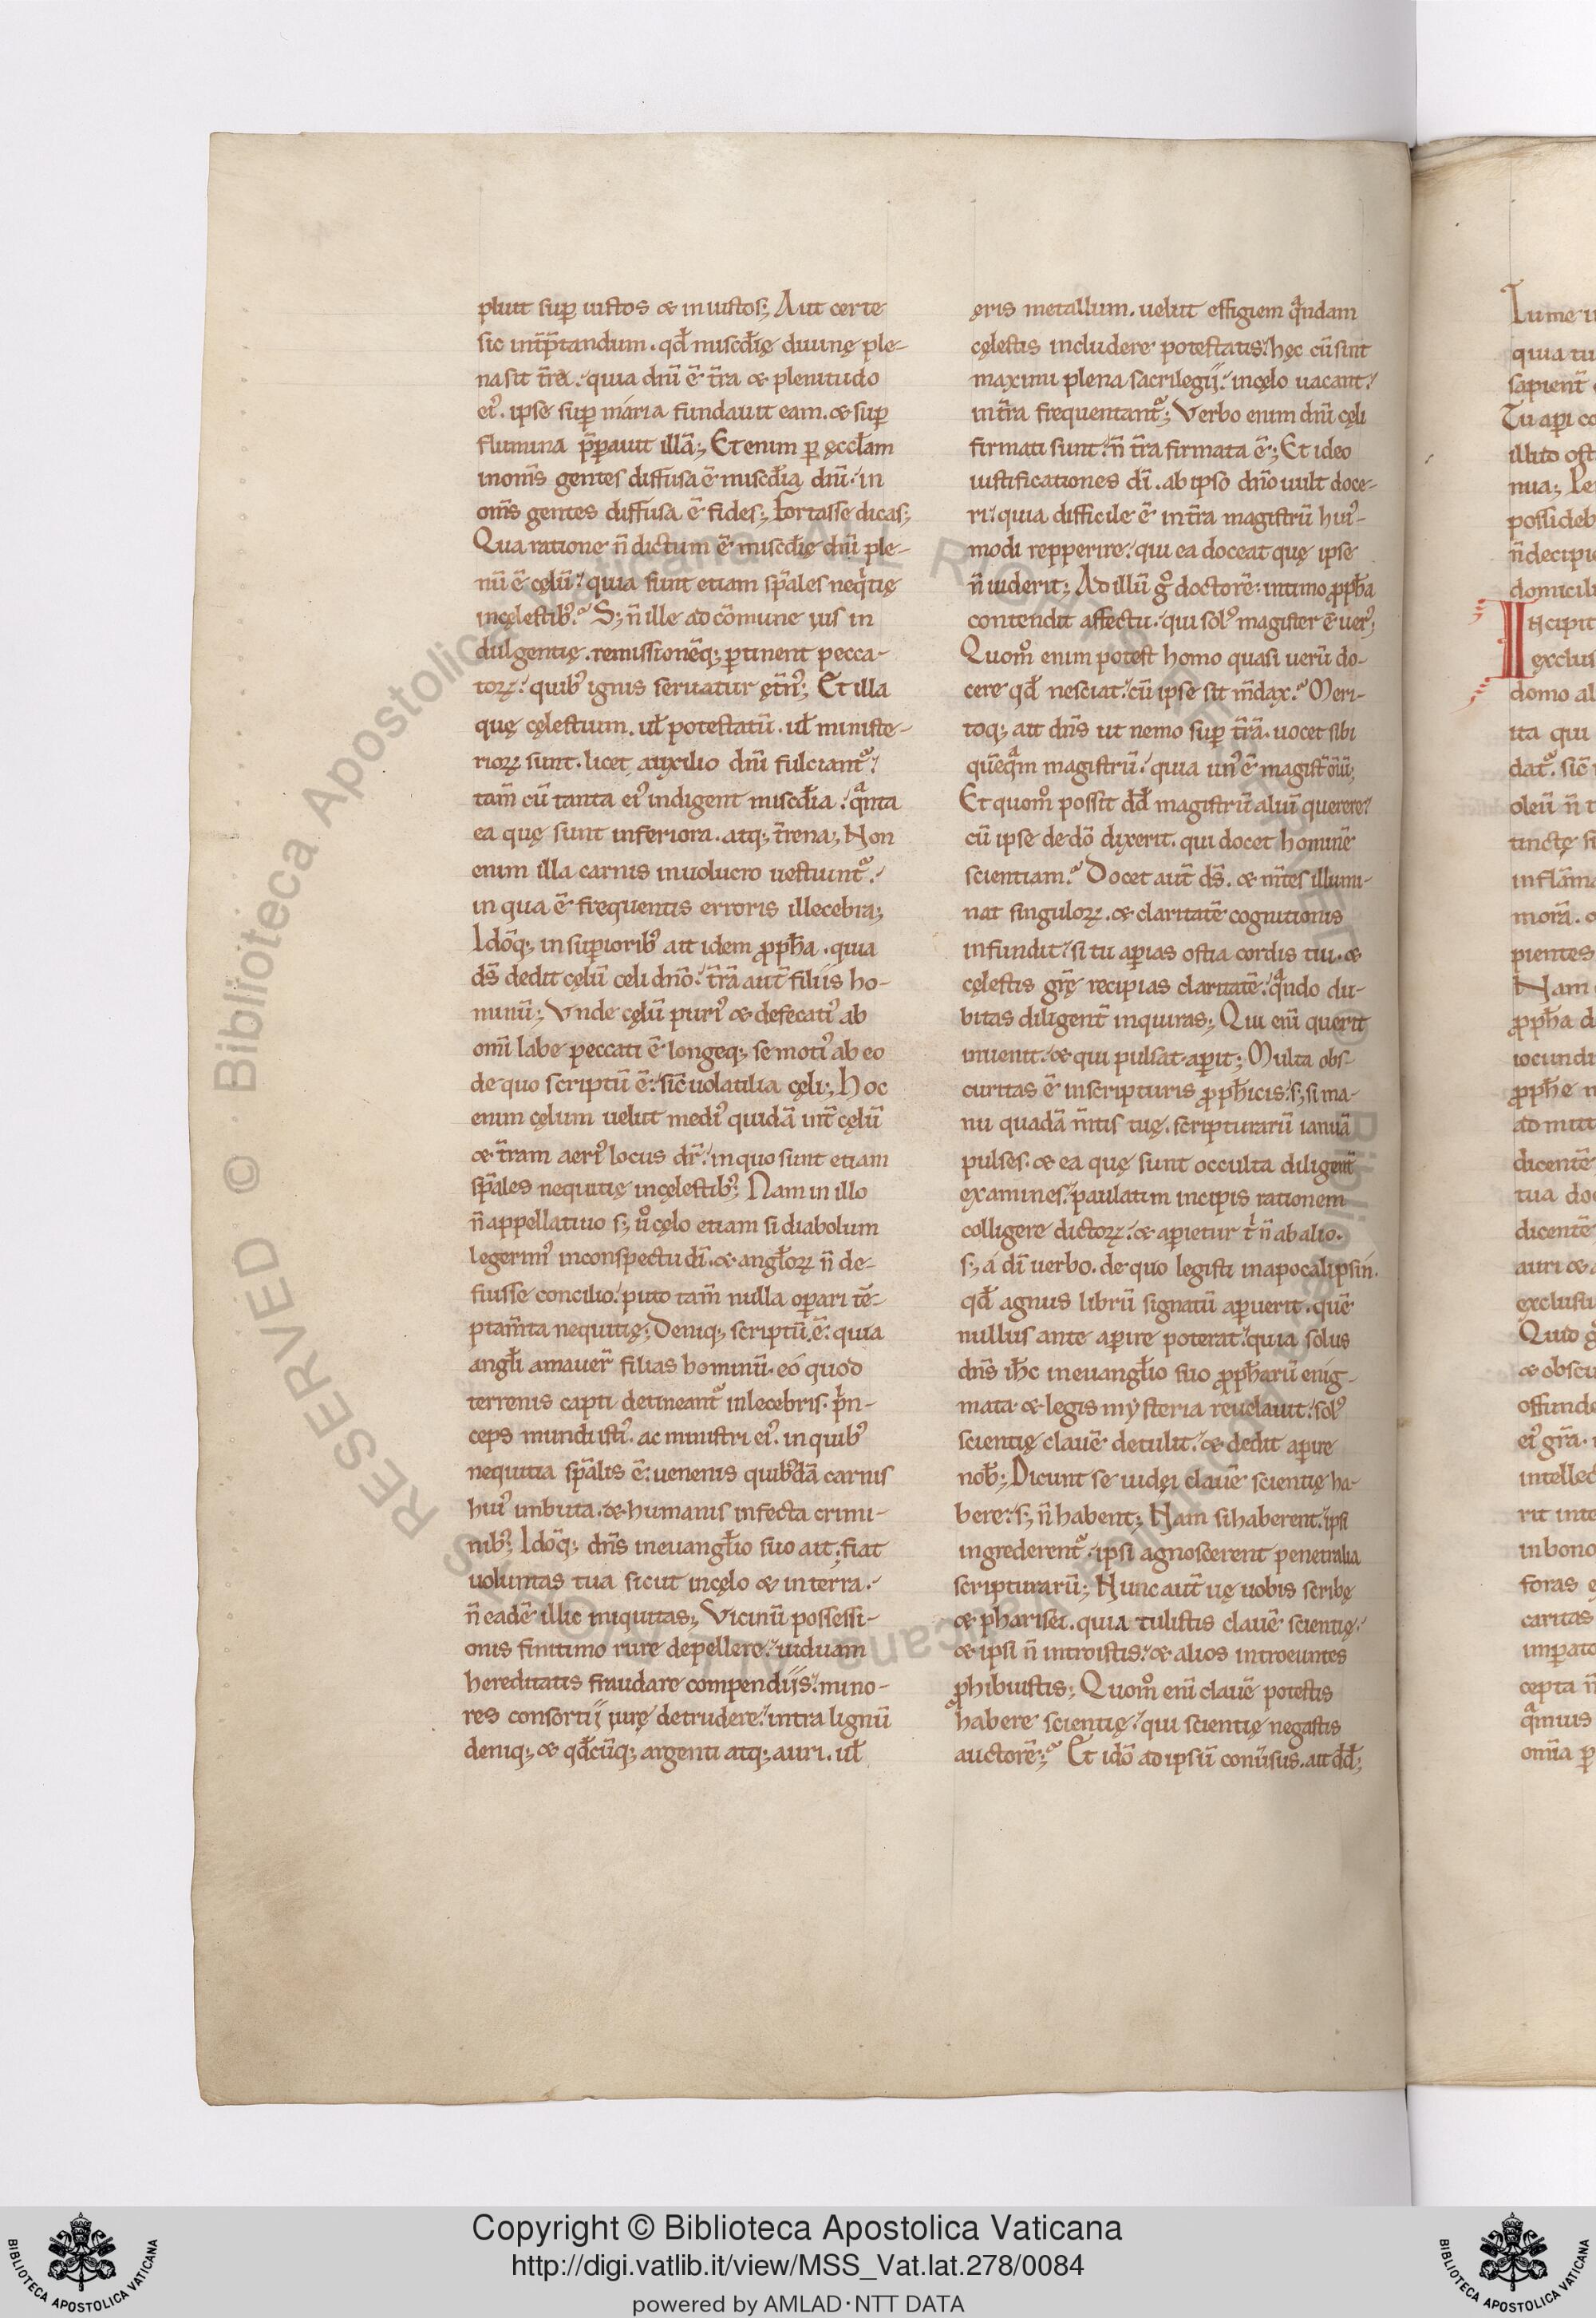 pluit sup̄ iustos & iniustos; Aut certe
sic int̄p̄tandum. qđ misc̄dię diuinę ple-
na sit t̄ra. quia dn̄i ē t̄ra & plenitudo
ei᾽. ipse sup̄ maria fundauit eam. & sup̄
flumina p̄parauit illā; Etenim p̄ ęccl̄am
in om̄s gentes diffusa ē misc̄dia dn̄i. in
om̄s gentes diffusa ē fides; Fortasse dicas;
Qua ratione n̄ dictum ē misc̄dię dn̄i ple-
nū ē cęlū. quia sunt etiam sp̄ales neq̇tię
in cęlestib᾽? S; n̄ ille ad cōmune ius in
dulgentię. remissionēq; p̄tinent pecca-
toꝝ. quib᾽ ignis seruatur ęt̄n᾽; Et illa
quę cęlestium. ul̄ potestatū. ul̄ ministe-
rioꝝ sunt. licet auxilio dn̄i fulciant᾽.
tam̄ cū tanta ei᾽ indigent misc̄dia. qᵃnta
ea quę sunt inferiora. atq; t̄rena; Non
enim illa carnis inuolucro uestiunt᾽.
in qua ē frequentis erroris illecebra;
Idōq; in supiorib᾽ ait idem ꝓph̄a. quia
ds̄ dedit cęlū celi dn̄o. t̄rā aut̄ filiis ho-
minū; Vnde cęlū puri᾽ & defecati᾽ ab
omi labe peccati ē longeq; semoti᾽ ab eo
de quo scriptū ē. sic̄ uolatilia cęli; Hoc
enim cęlum uelut medi᾽ quidā int̄ cęlū
& t̄ram aeri᾽ locus dr̄. in quo sunt etiam
sp̄ales nequitię in cęlestib᾽; Nam in illo
n̄ appellatiuo s; uo cęlo etiam si diabolum
legerim᾽ in conspectu dī. & angl̄oꝝ n̄ de-
fuisse concilio. puto tam̄ nulla opari tē-
ptam̄ta nequitię; Deniq; scriptū ē. quia
angl̄i amauer̄ filias hominū. eó quod
terrenis capti detineant᾽ inlecebris. p̄n-
ceps mundi isti᾽. ac ministri ei᾽. in quib᾽
nequitia sp̄alis ē. uenenis quib᾽dā carnis
hui᾽ imbuta. & humanis infecta crimi-
nib᾽; Idōq; dn̄s in euangl̄io suo ait. fiat
uoluntas tua sicut in cęlo & in terra.
n̄ eadē illic iniquitas; Vicinū possessi-
onis finitimo rure depellere. uiduam
hereditatis fraudare compendiis. mino-
res consortii iurę detrudere. intra lignū
deniq; & qđcūq; argenti atq; auri. ul̄
ęris metallum. uelut effigiem qᵃndam
cęlestis includere potestatis. hęc cū sint
maximi plena sacrilegii. in cęlo uacant.
in t̄ra frequentant᾽; Verbo enim dn̄i cęli
firmati sunt. n̄ t̄ra firmata ē; Et ideo
iustificationes dī. ab ipso dn̄o uult doce-
ri. quia difficile ē in t̄ra magistrū hui᾽-
modi repperire. qui ea doceat quę ipse
n̄ uiderit; Ad illū gᵒ doctorē. intimo ꝓph̄a
contendit affectu. qui sol᾽ magister ē uer᾽;
Quomᵒ enim potest homo quasi uerū do-
cere qđ nesciat. cū ipse sit m̄dax? Meri-
toq; ait dn̄s ut nemo sup̄ t̄rā. uocet sibi
quēqᵃm magistrū. quia un᾽ ē magist̄ om̄iū;
Et quomᵒ possit dđ magistrū aliū querere.
cū ipse de dō dixerit. qui docet hominē
scientiam? Docet aut̄ ds̄. & m̄tes illumi-
nat singuloꝝ. & claritatē cognitionis
infundit. si tu aperias ostia cordis tui. &
cęlestis grę recipias claritatē. qᵃndo du-
bitas diligent̄ inquiras; Qui eni querit
inuenit. & qui pulsat aperit; Multa obs-
curitas ē in scripturis ꝓph̄icis. s; si ma-
nu quadā m̄tis tuę. scripturarū ianuā
pulses. & ea quę sunt occulta diligent̄
examines. paulatim incipis rationem
colligere dictoꝝ. & aperietur t̄ n̄ ab alio.
s; á dī uerbo. de quo legisti in apocalipsin.
qđ agnus librū signatū aperuerit. quē
nullus ante aperire poterat. quia solus
dn̄s ih̄c in euangl̄io suo ꝓph̄arū enig-
mata & legis mysteria reuelauit. sol᾽
scientię clauē detulit. & dedit aperire
nob̄; Dicunt se iudęi clauē scientię ha-
bere. s; n̄ habent; Nam si haberent. ipsi
ingrederent᾽. ipsi agnoscerent penetralia
scripturarū; Nunc aut̄ uę uobis scribę
& pharisei. quia tulistis clauē scientię.
& ipsi n̄ introistis. & alios introeuntes
ꝓhibuistis; Quomᵒ eni clauē potestis
habere scientię. qui scientię negastis
auctorē;? Et idō ad ipsū conuersus. ait dđ;
Copyright © Biblioteca Apostolica Vaticana
http://digi.vatlib.it/view/MSS_Vat.lat.278/0084
powered by AMLAD·NTT DATA